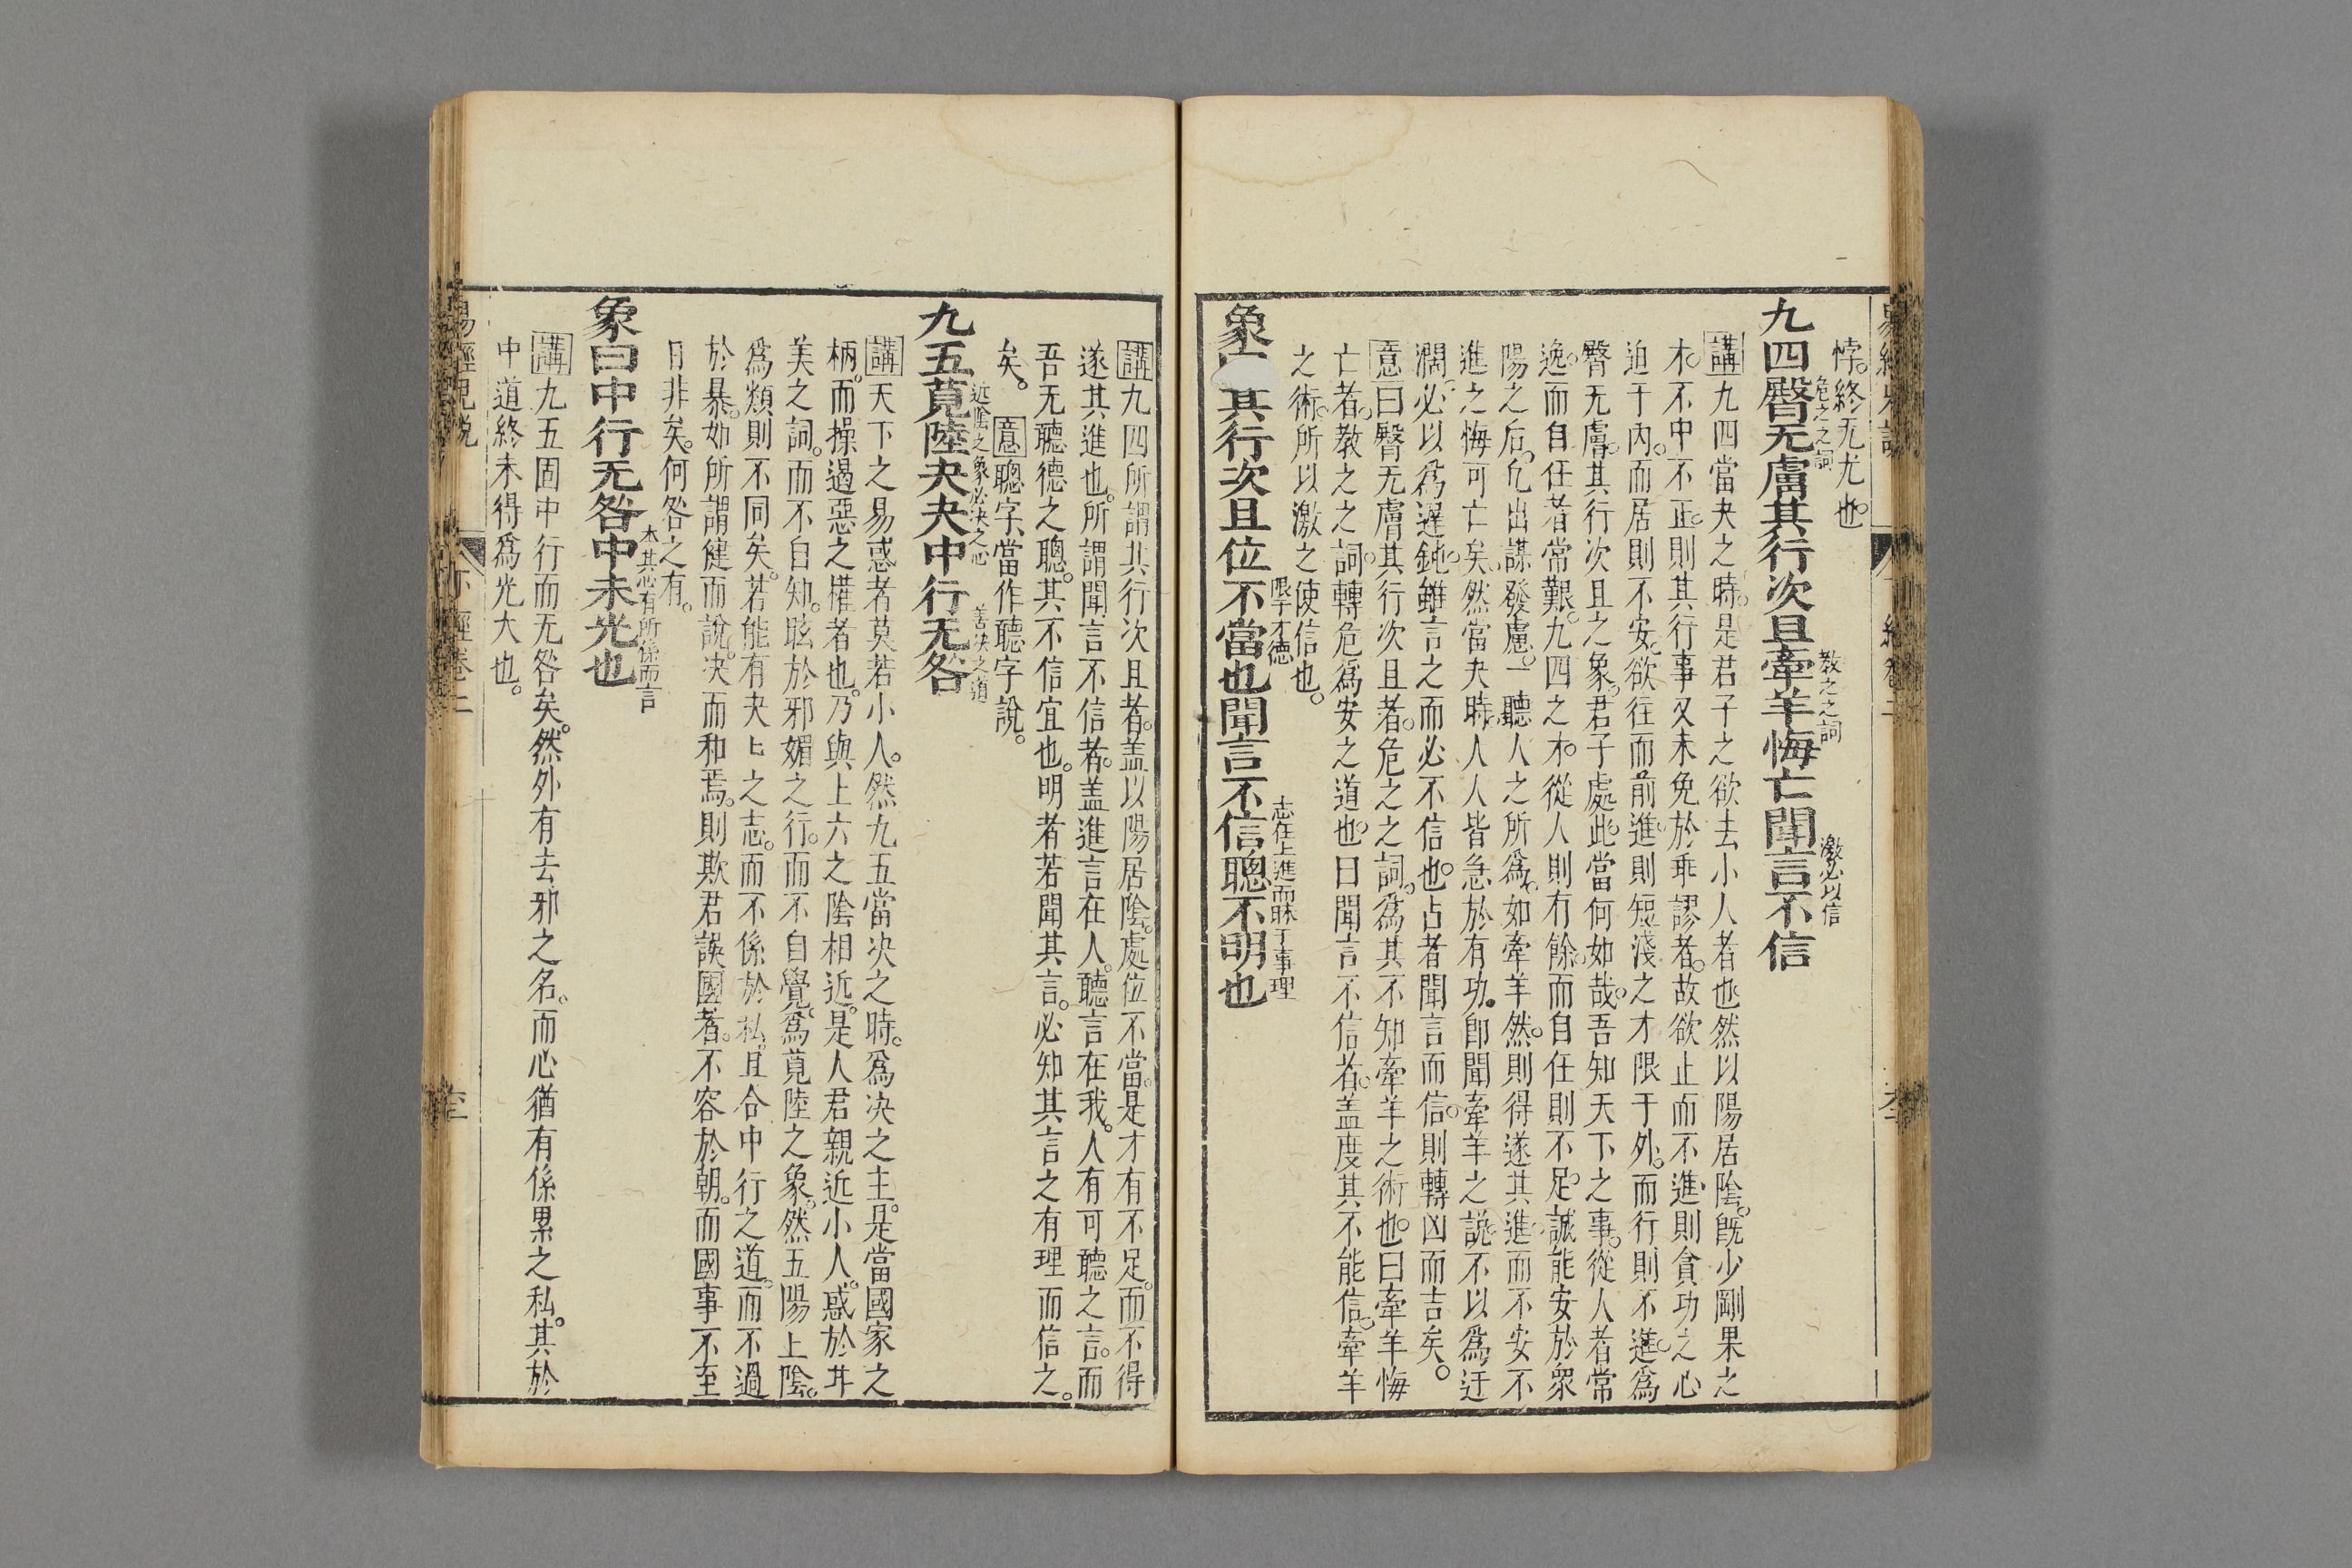 悖。終无尤也。
危之之詞
教之之詞
激必以信
九四臀无膚其行次且牽羊悔亡聞言不信
講九四當夬之時。是君子之欲去小人者也然以陽居陰。旣少剛果之
才。不中不正。則其行事又未免於乖謬者。故欲止而不進。則貪功之心
迫于內。而居則不安。欲往而前進。則短淺之才限于外。而行則不進。爲
臀无膚。其行次且之象。君子處此。當何如哉。吾知天下之事。從人者常
逸。而自任者常艱。九四之才。從人則有餘。而自任則不足。誠能安於衆
陽之后。凢出謀發慮。一聽人之所爲。如牽羊然。則得遂其進。而不安不
進之悔可亡矣。然當夬時。人人皆急於有功。卽聞牽羊之說。不以爲迂
濶。必以爲遲鈍。雖言之而必不信也。占者聞言而信。則轉凶而吉矣。
意曰臀无膚其行次且者。危之之詞。爲其不知牽羊之術也。曰牽羊悔
亡者。教之之詞。轉危爲安之道也。曰聞言不信者。盖度其不能信。牽羊
之術。所以激之使信也。
限于才德
志在上進而昧于事理
象 其行次且位不當也聞言不信聰不明也
講九四所謂其行次且者。盖以陽居陰。處位不當。是才有不足。而不得
遂其進也。所謂聞言不信者。盖進言在人。聽言在我。人有可聽之言。而
吾无聽德之聰。其不信宜也。明者若聞其言。必知其言之有理而信之。
矣。意聰字當作聽字說。
近陰之象必决之心
善决之道
九五莧陸夬夬中行无咎
講天下之易惑者莫若小人。然九五當决之時。爲决之主。是當國家之
柄。而操遏惡之權者也。乃與上六之陰相近。是人君親近小人。惑於其
美之詞。而不自知。眩於邪媚之行。而不自覺。爲莧陸之象。然五陽上陰。
爲類則不同矣。若能有夬〻之志。而不係於私。且合中行之道。而不過
於暴。如所謂健而說。决而和焉。則欺君誤國者。不容於朝。而國事不至
日非矣。何咎之有。
本其心有所係而言
象曰中行无咎中未光也
講九五固中行而无咎矣。然外有去邪之名。而心猶有係累之私。其於
中道終未得爲光大也。
下經卷二